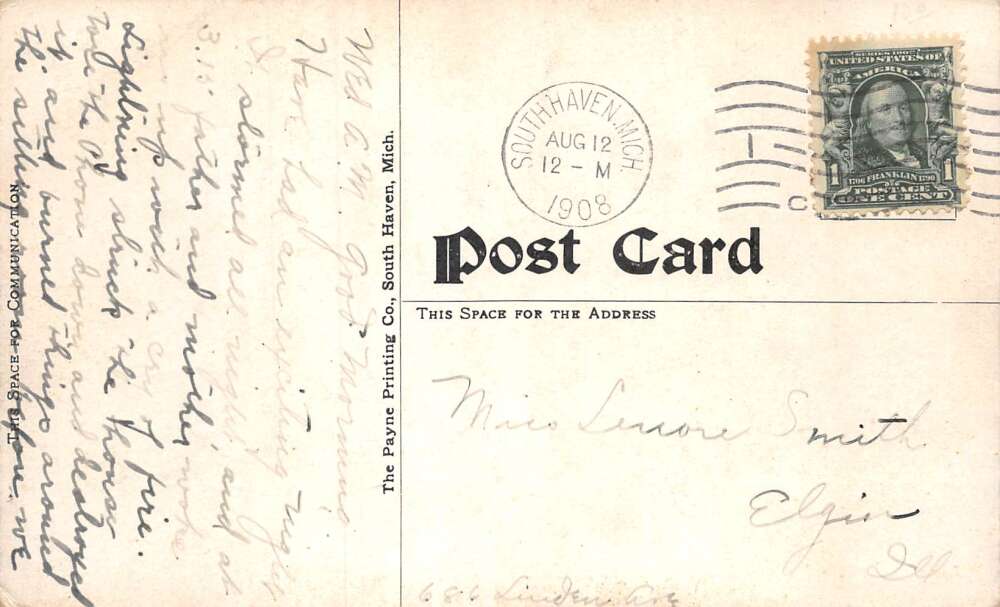 SERIES 1902
UNITED STATES OF
AMERICA
1 1706 FRANKLIN 1790 1
POSTAGE
ONE CENT
SOUTH HAVEN, MICH.
AUG 12
12 - M
1908
1
Post Card
THIS SPACE FOR THE ADDRESS
Miss Lenore Smith
Elgin
Ill
686 Linden Ave
The Payne Printing Co., South Haven, Mich.
THIS SPACE FOR COMMUNICATION
Wed A.M. Good Morning
Have had an exciting night
It stormed all night, and at
3.15 father and mother woke
me up with a cry of fire.
Lightning struck the house
tore the phone down and destroyed
it and burned things around
the sitting room before we